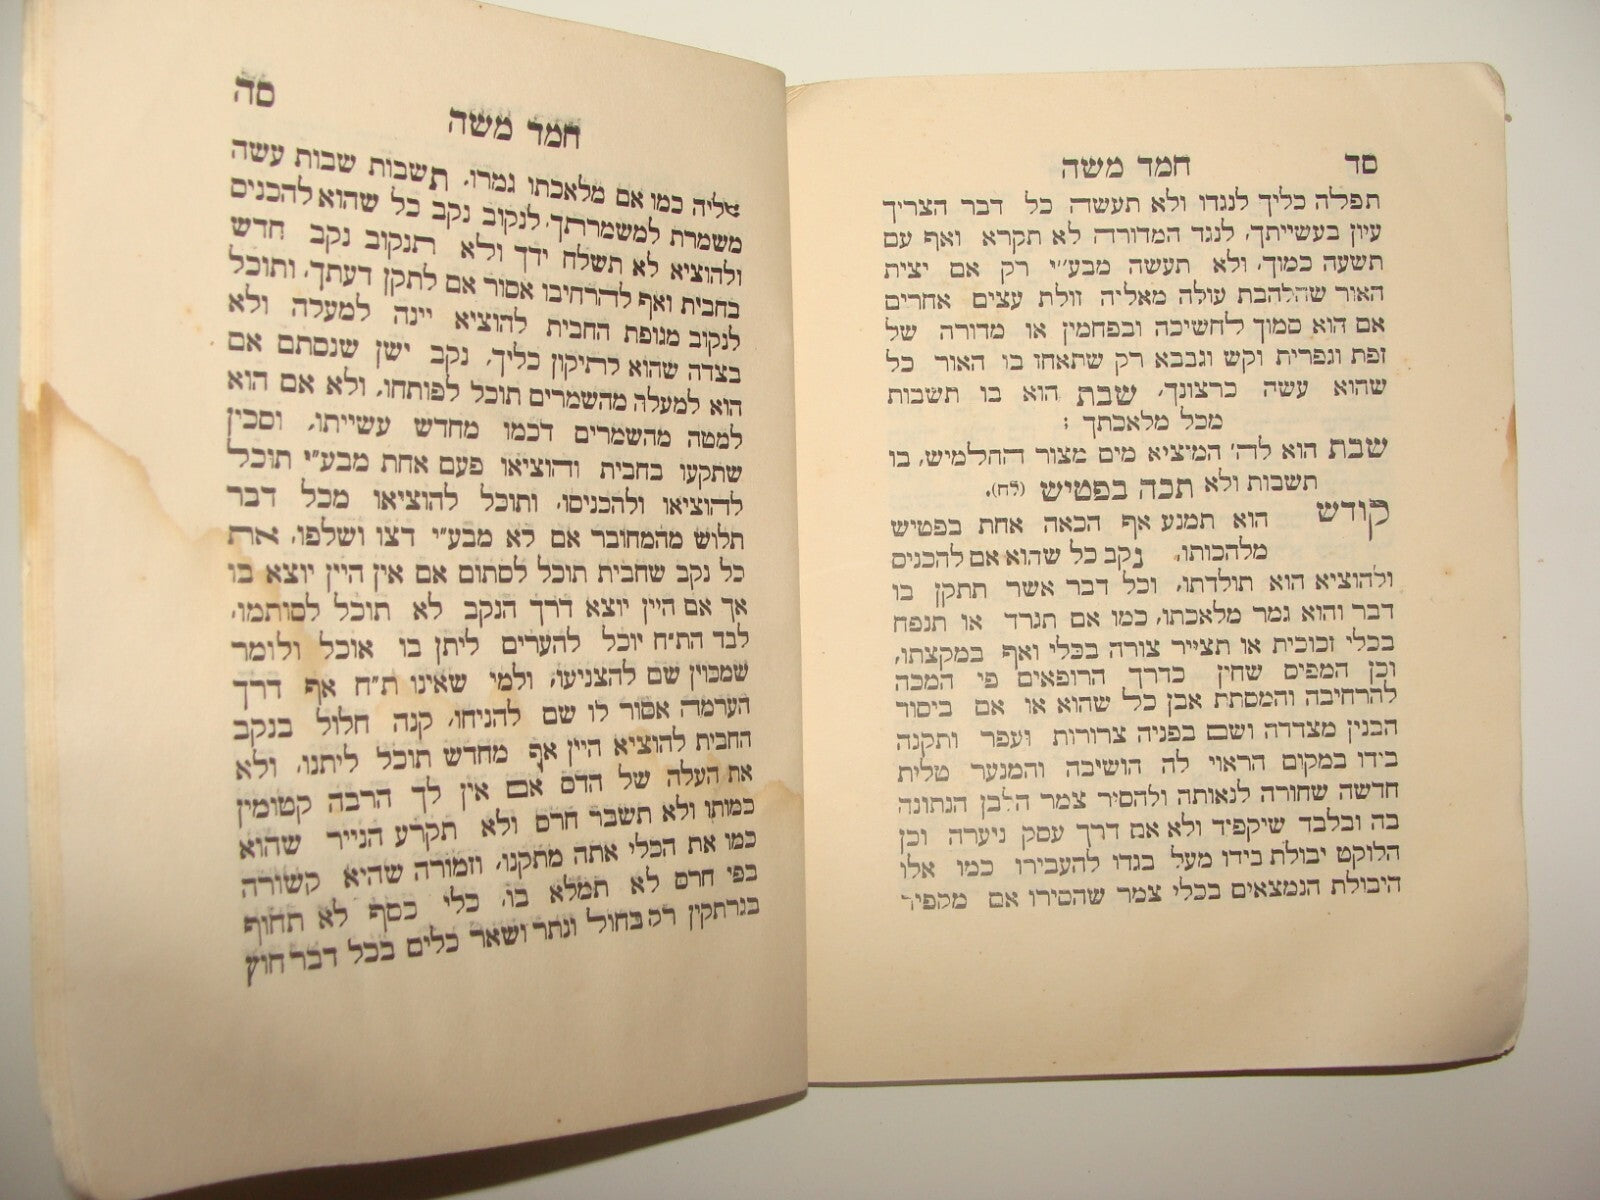 סד
חמד משה
תפלה כליך לנגדו ולא תעשה כל דבר הצריך
עיון בעשייתך, לנגד המדורה לא תקרא ואף עם
תשעה כמוך, ולא תעשה מבע"י רק אם יצית
האור שהלהבת עולה מאליה זולת עצים אחרים
אם הוא סמוך לחשיכה ובפחמין או מדורה של
זפת וגפרית וקש וגבבא רק שתאחז בו האור כל
שהוא עשה כרצונך, שבת הוא בו תשבות
מכל מלאכתך :
שבת הוא לה' המוציא מים מצור החלמיש, בו
תשבות ולא תכה בפטיש (לח).
קודש הוא תמנע אף הכאה אחת בפטיש
מלהכותו, נקב כל שהוא אם להכניס
ולהוציא הוא תולדתו, וכל דבר אשר תתקן בו
דבר והוא גמר מלאכתו, כמו אם תגרד או תנפח
בכלי זכוכית או תצייר צורה בכלי ואף במקצתו,
וכן המפיס שחין כדרך הרופאים פי המכה
להרחיבה והמסתת אבן כל שהוא או אם ביסוד
הבנין מצדדה ושם בפניה צרורות ועפר ותקנה
בידו במקום הראוי לה הושיבה והמנער טלית
חדשה שחורה לנאותה ולהסיר צמר הלבן הנתונה
בה ובלבד שיקפיד ולא אם דרך עסק ניערה וכן
הלוקט יבולת בידו מעל בגדו להעבירו כמו אלו
היבולת הנמצאים בכלי צמר שהסירו אם מקפיד
סה
חמד משה
עליה כמו אם מלאכתו גמרו, תשבות שבות עשה
משמרת למשמרתך, לנקוב נקב כל שהוא להכנים
ולהוציא לא תשלח ידך ולא תנקוב נקב חדש
בחבית ואף להרחיבו אסור אם לתקן דעתך, ותוכל
לנקוב מגופת החבית להוציא יינה למעלה ולא
בצדה שהוא לתיקון כליך, נקב ישן שנסתם אם
הוא למעלה מהשמרים תוכל לפותחו, ולא אם הוא
למטה מהשמרים דכמו מחדש עשייתו, וסכין
שתקעו בחבית והוציאו פעם אחת מבע"י תוכל
להוציאו ולהכניסו, ותוכל להוציאו מכל דבר
תלוש מהמחובר אם לא מבע"י דצו ושלפו, את
כל נקב שחבית תוכל לסתום אם אין היין יוצא בו
אך אם היין יוצא דרך הנקב לא תוכל לסותמו,
לבד הת"ח יוכל להערים ליתן בו אוכל ולומר
שמכוין שם להצניעו, ולמי שאינו ת"ח אף דרך
הערמה אסור לו שם להניחו, קנה חלול בנקב
החבית להוציא היין אף מחדש תוכל ליתנו, ולא
את העלה של הדס אם אין לך הרבה קטומין
כמותו ולא תשבר חרס ולא תקרע הנייר שהוא
כמו את הכלי אתה מתקנו, וזמורה שהיא קשורה
בפי חרס לא תמלא בו, כלי כסף לא תחוף
בגרתקין רק בחול ונתר ושאר כלים בכל דבר חוץ